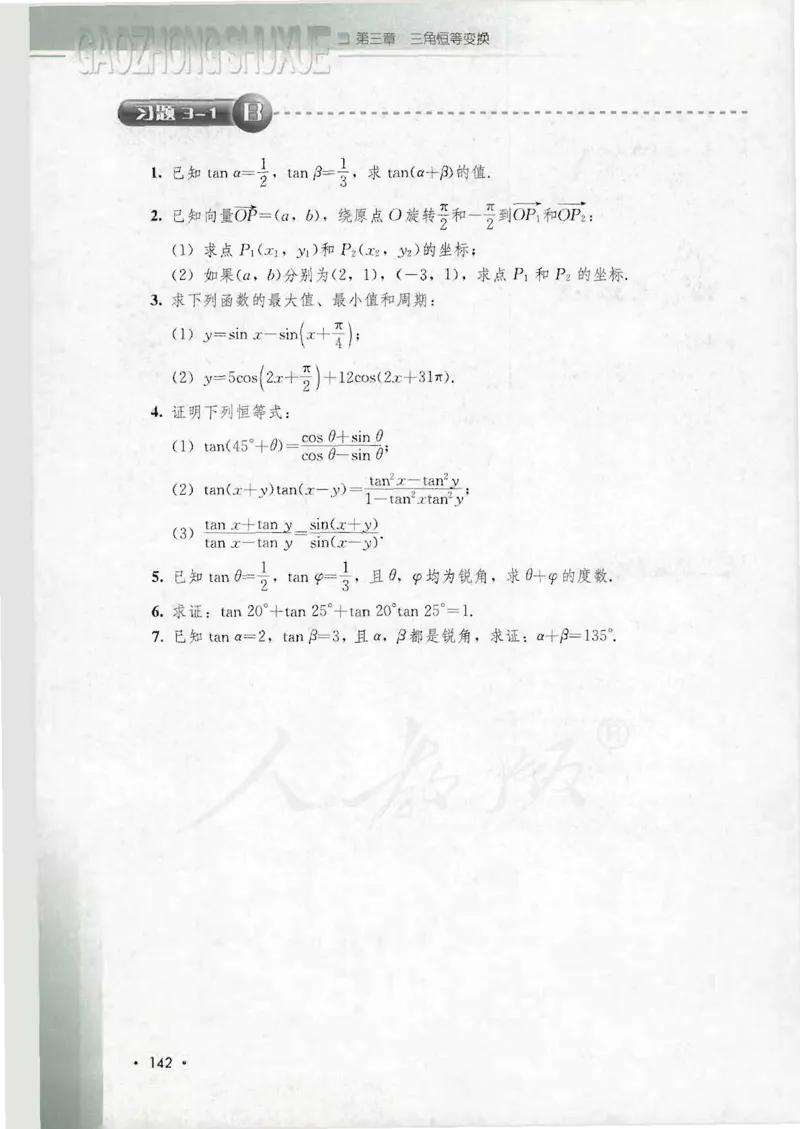 GAOZHONGSHUXUE 第三章 三角恒等变换
习题 3-1 B
1. 已知 tan α=1/2, tan β=1/3, 求 tan(α+β)的值.
2. 已知向量OP→=(a, b), 绕原点 O 旋转π/2和-π/2到OP₁→和OP₂→:
(1) 求点 P₁(x₁, y₁)和 P₂(x₂, y₂)的坐标;
(2) 如果(a, b)分别为(2, 1), (-3, 1), 求点 P₁ 和 P₂ 的坐标.
3. 求下列函数的最大值、最小值和周期:
(1) y=sin x-sin(x+π/4);
(2) y=5cos(2x+π/2)+12cos(2x+31π).
4. 证明下列恒等式:
(1) tan(45°+θ)=(cos θ+sin θ)/(cos θ-sin θ);
(2) tan(x+y)tan(x-y)=(tan²x-tan²y)/(1-tan²xtan²y);
(3) (tan x+tan y)/(tan x-tan y)=sin(x+y)/sin(x-y).
5. 已知 tan θ=1/2, tan φ=1/3, 且 θ, φ 均为锐角, 求 θ+φ 的度数.
6. 求证: tan 20°+tan 25°+tan 20°tan 25°=1.
7. 已知 tan α=2, tan β=3, 且 α, β 都是锐角, 求证: α+β=135°.
人教版®
· 142 ·